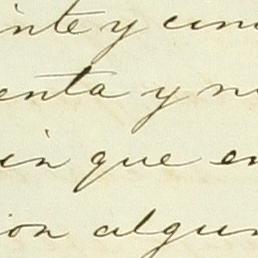 inte y un
enta y n
in que en
ion algun